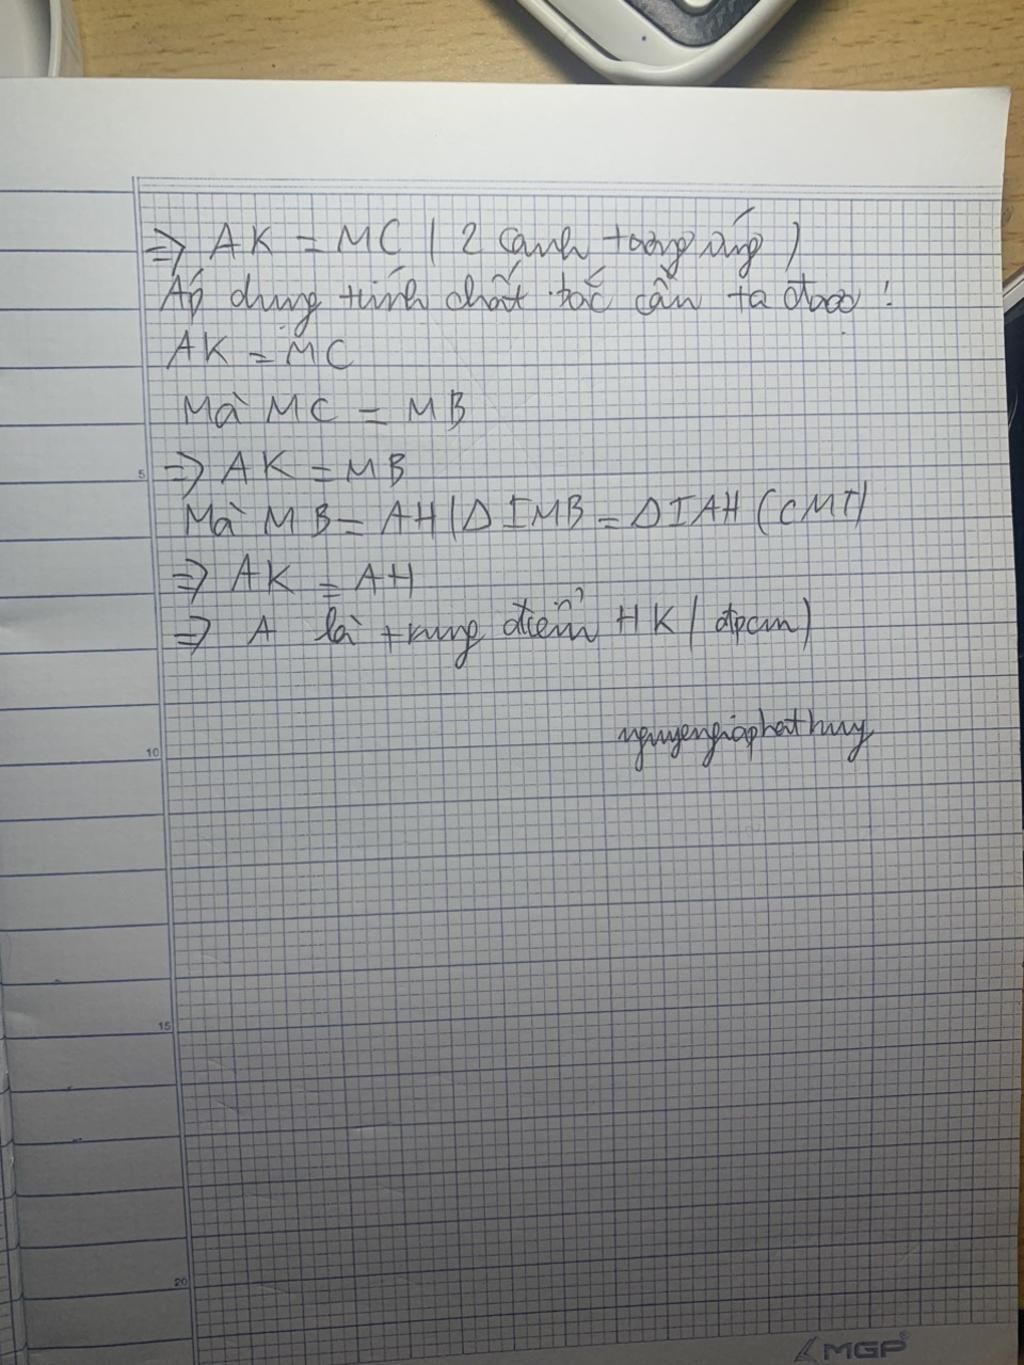 => AK = MC ( 2 cạnh tương ứng )
Áp dụng tính chất bắc cầu ta được :
AK = MC
Mà MC = MB
=> AK = MB
Mà MB = AH ( Δ IMB = Δ IAH (CMT)
=> AK = AH
=> A là trung điểm HK ( đpcm )
nguyengiaphathuy
5
10
15
20
MGP